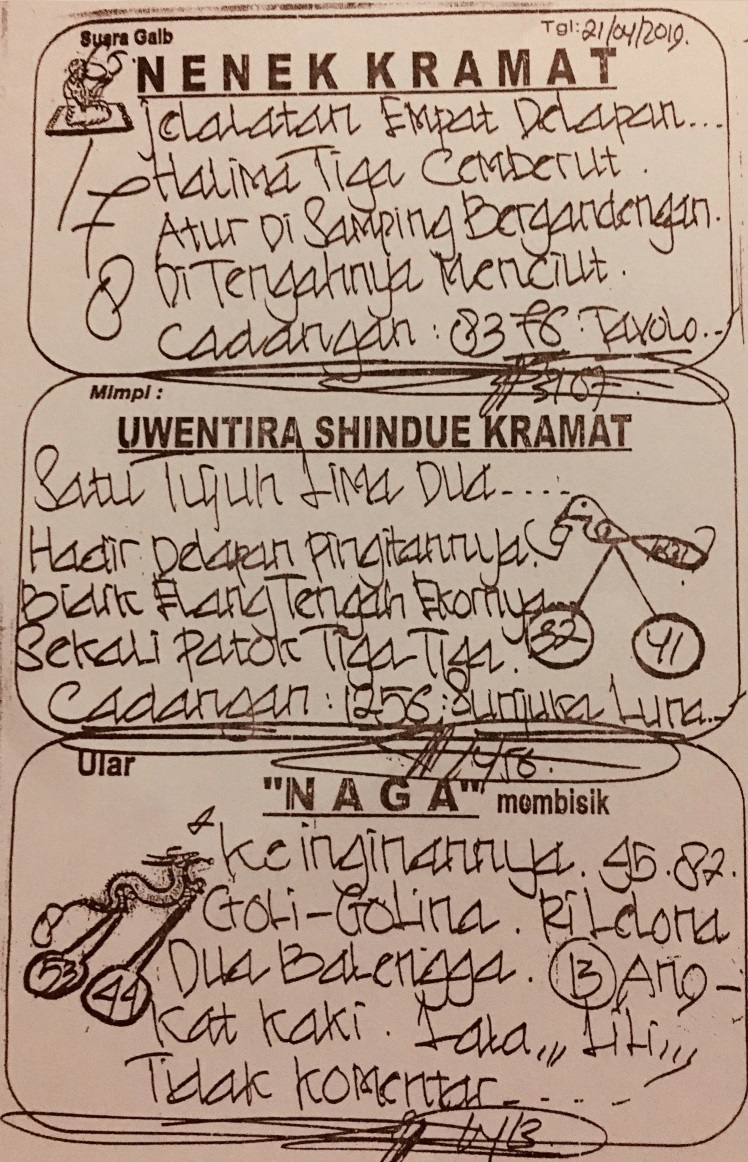 Suara Gaib
Tgl: 21/04/2019.
NENEK KRAMAT
Jelalatan Empat Delapan...
Halima Tiga Cemberut.
Atur Di Samping Bergandengan.
Di Tengahnya Menciut.
Cadangan: 8376. Tavolo..
17
8
Mimpi :
UWENTIRA SHINDUE KRAMAT
Satu Tujuh Lima Dua.....
Hadir Delapan Pingitannya.
Bidik Elang Tengah Ekornya...
Sekali Patok Tiga-Tiga.
32
41
Cadangan: 1256: Sunjuka Luna..
Ular
"NAGA" membisik
4
Keinginannya. 95.82.
Goli-Golina. Ri Lelona
8
53
44
Dua Balengga. 13 Ang-
kat kaki. Lala,,, Lili,,,
Tidak Komentar....